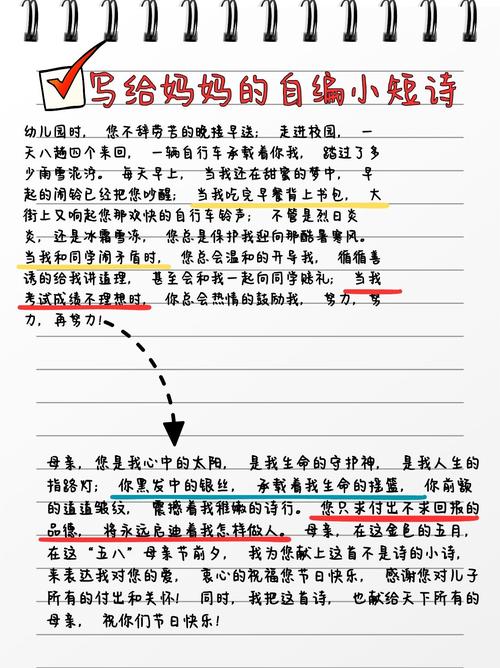 写给妈妈的自编小短诗
幼儿园时， 您不辞劳苦的晚接早送； 走进校园， 一
天八趟四个来回， 一辆自行车承载着你我， 踏过了多
少雨雪泥泞。 每天早上， 当我还在甜蜜的梦中， 早
起的闹铃已经把您吵醒； 当我吃完早餐背上书包， 大
街上又响起您那欢快的自行车铃声； 不管是烈日炎
炎，还是冰霜雪冻， 您总是保护我迎向那酷暑寒风。
当我和同学闹矛盾时， 您总会温和的开导我， 循循善
诱的给我讲道理， 甚至会和我一起向同学赔礼； 当我
考试成绩不理想时， 你总会热情的鼓励我， 努力，努
力，再努力！
母亲，您是我心中的太阳， 是我生命的守护神， 是我人生的
指路灯； 你黑发中的银丝， 承载着我生命的摇篮， 你前额
的道道皱纹， 震撼着我稚嫩的诗行。 您只求付出不求回报的
品德， 将永远启迪着我怎样做人。 母亲，在这金色的五月，
在这“五八”母亲节前夕， 我为您献上这首不是诗的小诗，
来表达我对您的爱， 衷心的祝福您节日快乐， 感谢您对儿子
所有的付出和关怀！ 同时， 我把这首诗， 也献给天下所有的
母亲， 祝你们节日快乐！